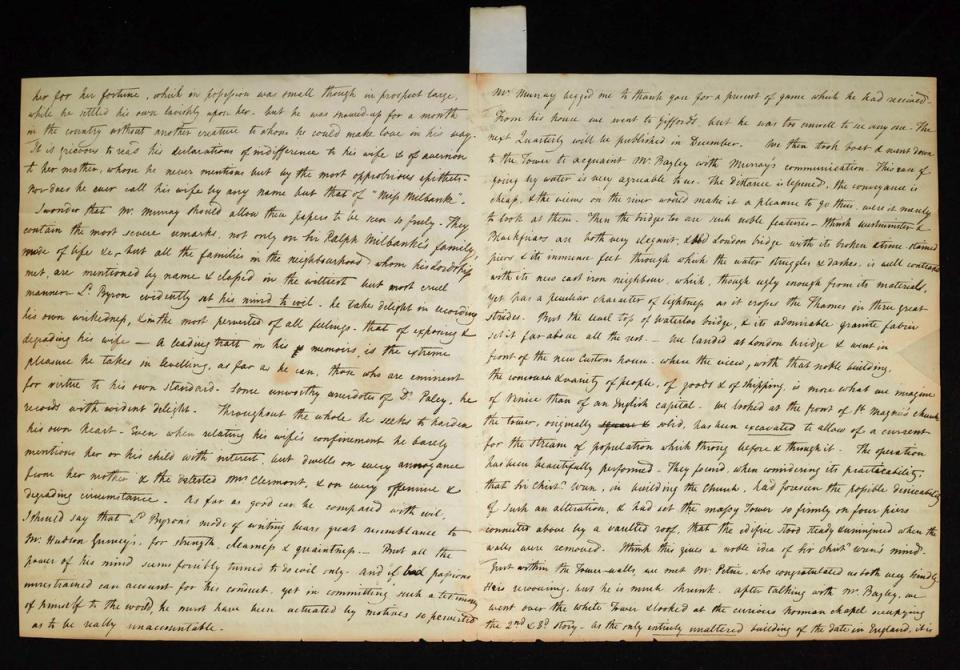 her for her fortune, which in possession was small though in prospect large,
while he settled his own lavishly upon her. but he was mewed-up for a month
in the country without another creature to whom he could make love in his way.
It is grievous to read his declarations of indifference to his wife & of aversion
to her mother, whom he never mentions but by the most opprobrious epithets.
Nor does he ever call his wife by any name but that of "Miss Milbank".
I wonder that Mr. Murray should allow these papers to be seen so freely. They
contain the most severe remarks, not only on Sir Ralph Milbanke's family,
mode of life &c, but all the families in the neighbourhood whom his Lordship
met, are mentioned by name & classed in the wittiest but most cruel
manner. Ld. Byron evidently set his mind to evil. he takes delight in recording
his own wickedness, & in the most perverted of all feelings. that of exposing &
degrading his wife — A leading trait in his memoirs, is the extreme
pleasure he takes in levelling, as far as he can, those who are eminent
for virtue to his own standard. Some unworthy anecdotes of Dr. Paley, he
records with evident delight. Throughout the whole he seeks to harden
his own heart. Even when relating his wife's confinement he barely
mentions her or his child with interest, but dwells on every arrogance
from her mother & the detested Mrs Clermont, & on every offensive &
degrading circumstance. As far as good can be compared with evil,
I should say that Ld. Byron's mode of writing bears great resemblance to
Mr. Hudson Gurney's, for strength, clearness & quaintness. — But all the
power of his mind seems forcibly turned to do evil only. and if bad passions
unrestrained can account for his conduct, yet in committing such a testimony
of himself to the world, he must have been actuated by motives so perverted
as to be really unaccountable.
Mr. Murray begged me to thank you for a present of game which he had received.
From his house we went to Giffords, but he was too unwell to see any one. The
next Quarterly will be published in December. We then took boat & went down
to the Tower to acquaint Mr. Bayley with Murray's communication. This way of
going by water is very agreeable to us. The distance is lessened, the conveyance is
cheap, & the views on the river would make it a pleasure to go there, were it merely
to look at them. Then the bridges too are such noble features. Think Westminster &
Blackfriars are both very elegant, & old London bridge with its broken stone stained
piers & its immense feet through which the water struggles & dashes, is well contrasted
with its new cast iron neighbour, which, though ugly enough from its materials,
yet has a peculiar character of lightness as it crosses the Thames in three great
strides. But the level top of Waterloo bridge, & its admirable granite fabric
set it far above all the rest. — We landed at London bridge & went in
front of the new Custom house. where the view, with that noble building,
the concourse & variety of people, of goods & of shipping, is more what we imagine
of Venice than of an English capital. We looked at the front of St. Magnus's church
the tower, originally square & solid, has been excavated to allow of a current
for the stream of population which throng before & through it. The operation
has been beautifully performed. They found, when considering its practicability,
that Sir Christr. Wren, in building the Church, had foreseen the possible desireability
of such an alteration, & had set the massy Tower so firmly on four piers
connected above by a vaulted roof, that the edifice stood steady & uninjured when the
walls were removed. I think this gives a noble idea of Sir Christr. Wren's mind.
Just within the Tower-walls, we met Mr. Petrie, who congratulated us both very kindly
He is recovering, but he is much shrunk. After talking with Mr. Bayley, we
went over the White Tower & looked at the curious Norman chapel occupying
the 2nd & 3d story. as the only entirely unaltered building of the date in England, it is